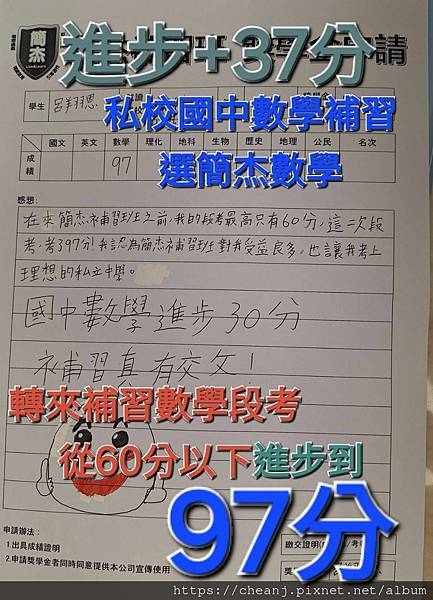 簡杰
進步+37分
請
學生 呂羽恩
私校國中數學補習
選簡杰數學
國文 英文 數學 理化 地科 生物 歷史 地理 公民 名次
成績 97
感想:
在來簡杰補習班之前,我的段考最高只有60分,這一次段
考,考了97分!我認為簡杰補習班對我受益良多,也讓我考上
理想的私立中學。
國中數學進步30分
補習真有交文!
轉來補習數學段考
從60分以下進步到
97分
申請辦法:
1.出具成績證明
2.申請獎學金者同時同意提供本公司宣傳使用
繳交證明
獎
https://cheanj.pixnet.net/album